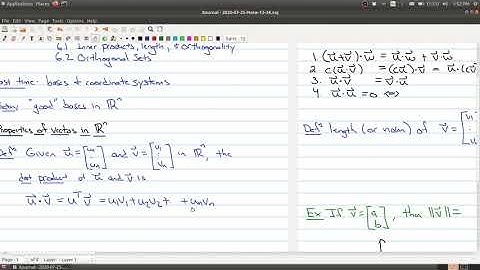 Applications Places
Xournal - 2020-07-25-Notes-12-34.xoj
1:52 PM
6.1 Inner products, length, & orthogonality
6.2 Orthogonal Sets
last time: bases & coordinate systems
"good" bases in ℝⁿ
Properties of vectors in ℝⁿ
Defⁿ Given u⃗ = [u₁ ⋮ uₙ] and v⃗ = [v₁ ⋮ vₙ] in ℝⁿ, the
dot product of u⃗ and v⃗ is
u⃗·v⃗ = u⃗ᵀv⃗ = u₁v₁ + u₂v₂ + + uₙvₙ
1 (u⃗+v⃗)·w⃗ = u⃗·w⃗ + v⃗·w⃗
2 c(u⃗·v⃗) = (cu⃗)·v⃗ = u⃗·(cv⃗
3. u⃗·v⃗ = v⃗·u⃗
4 u⃗·u⃗ = 0 ⇔
Defⁿ length (or norm) of v⃗ = [v₁ ⋮ vₙ]
Ex If v⃗ = [a b], then ||v⃗|| =
Page 1 of 8 Layer: Layer 1